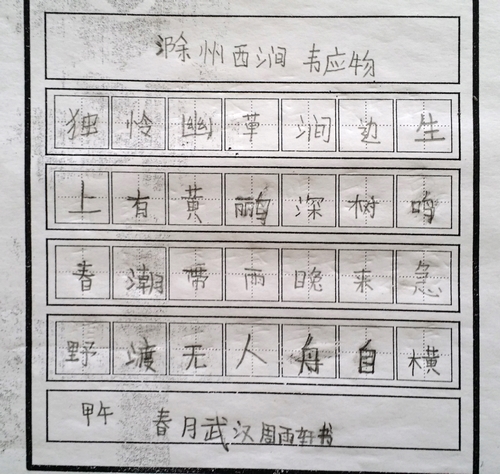 滁州西涧 韦应物
独怜幽草涧边生
上有黄鹂深树鸣
春潮带雨晚来急
野渡无人舟自横
甲午 春月武汉周雨轩书